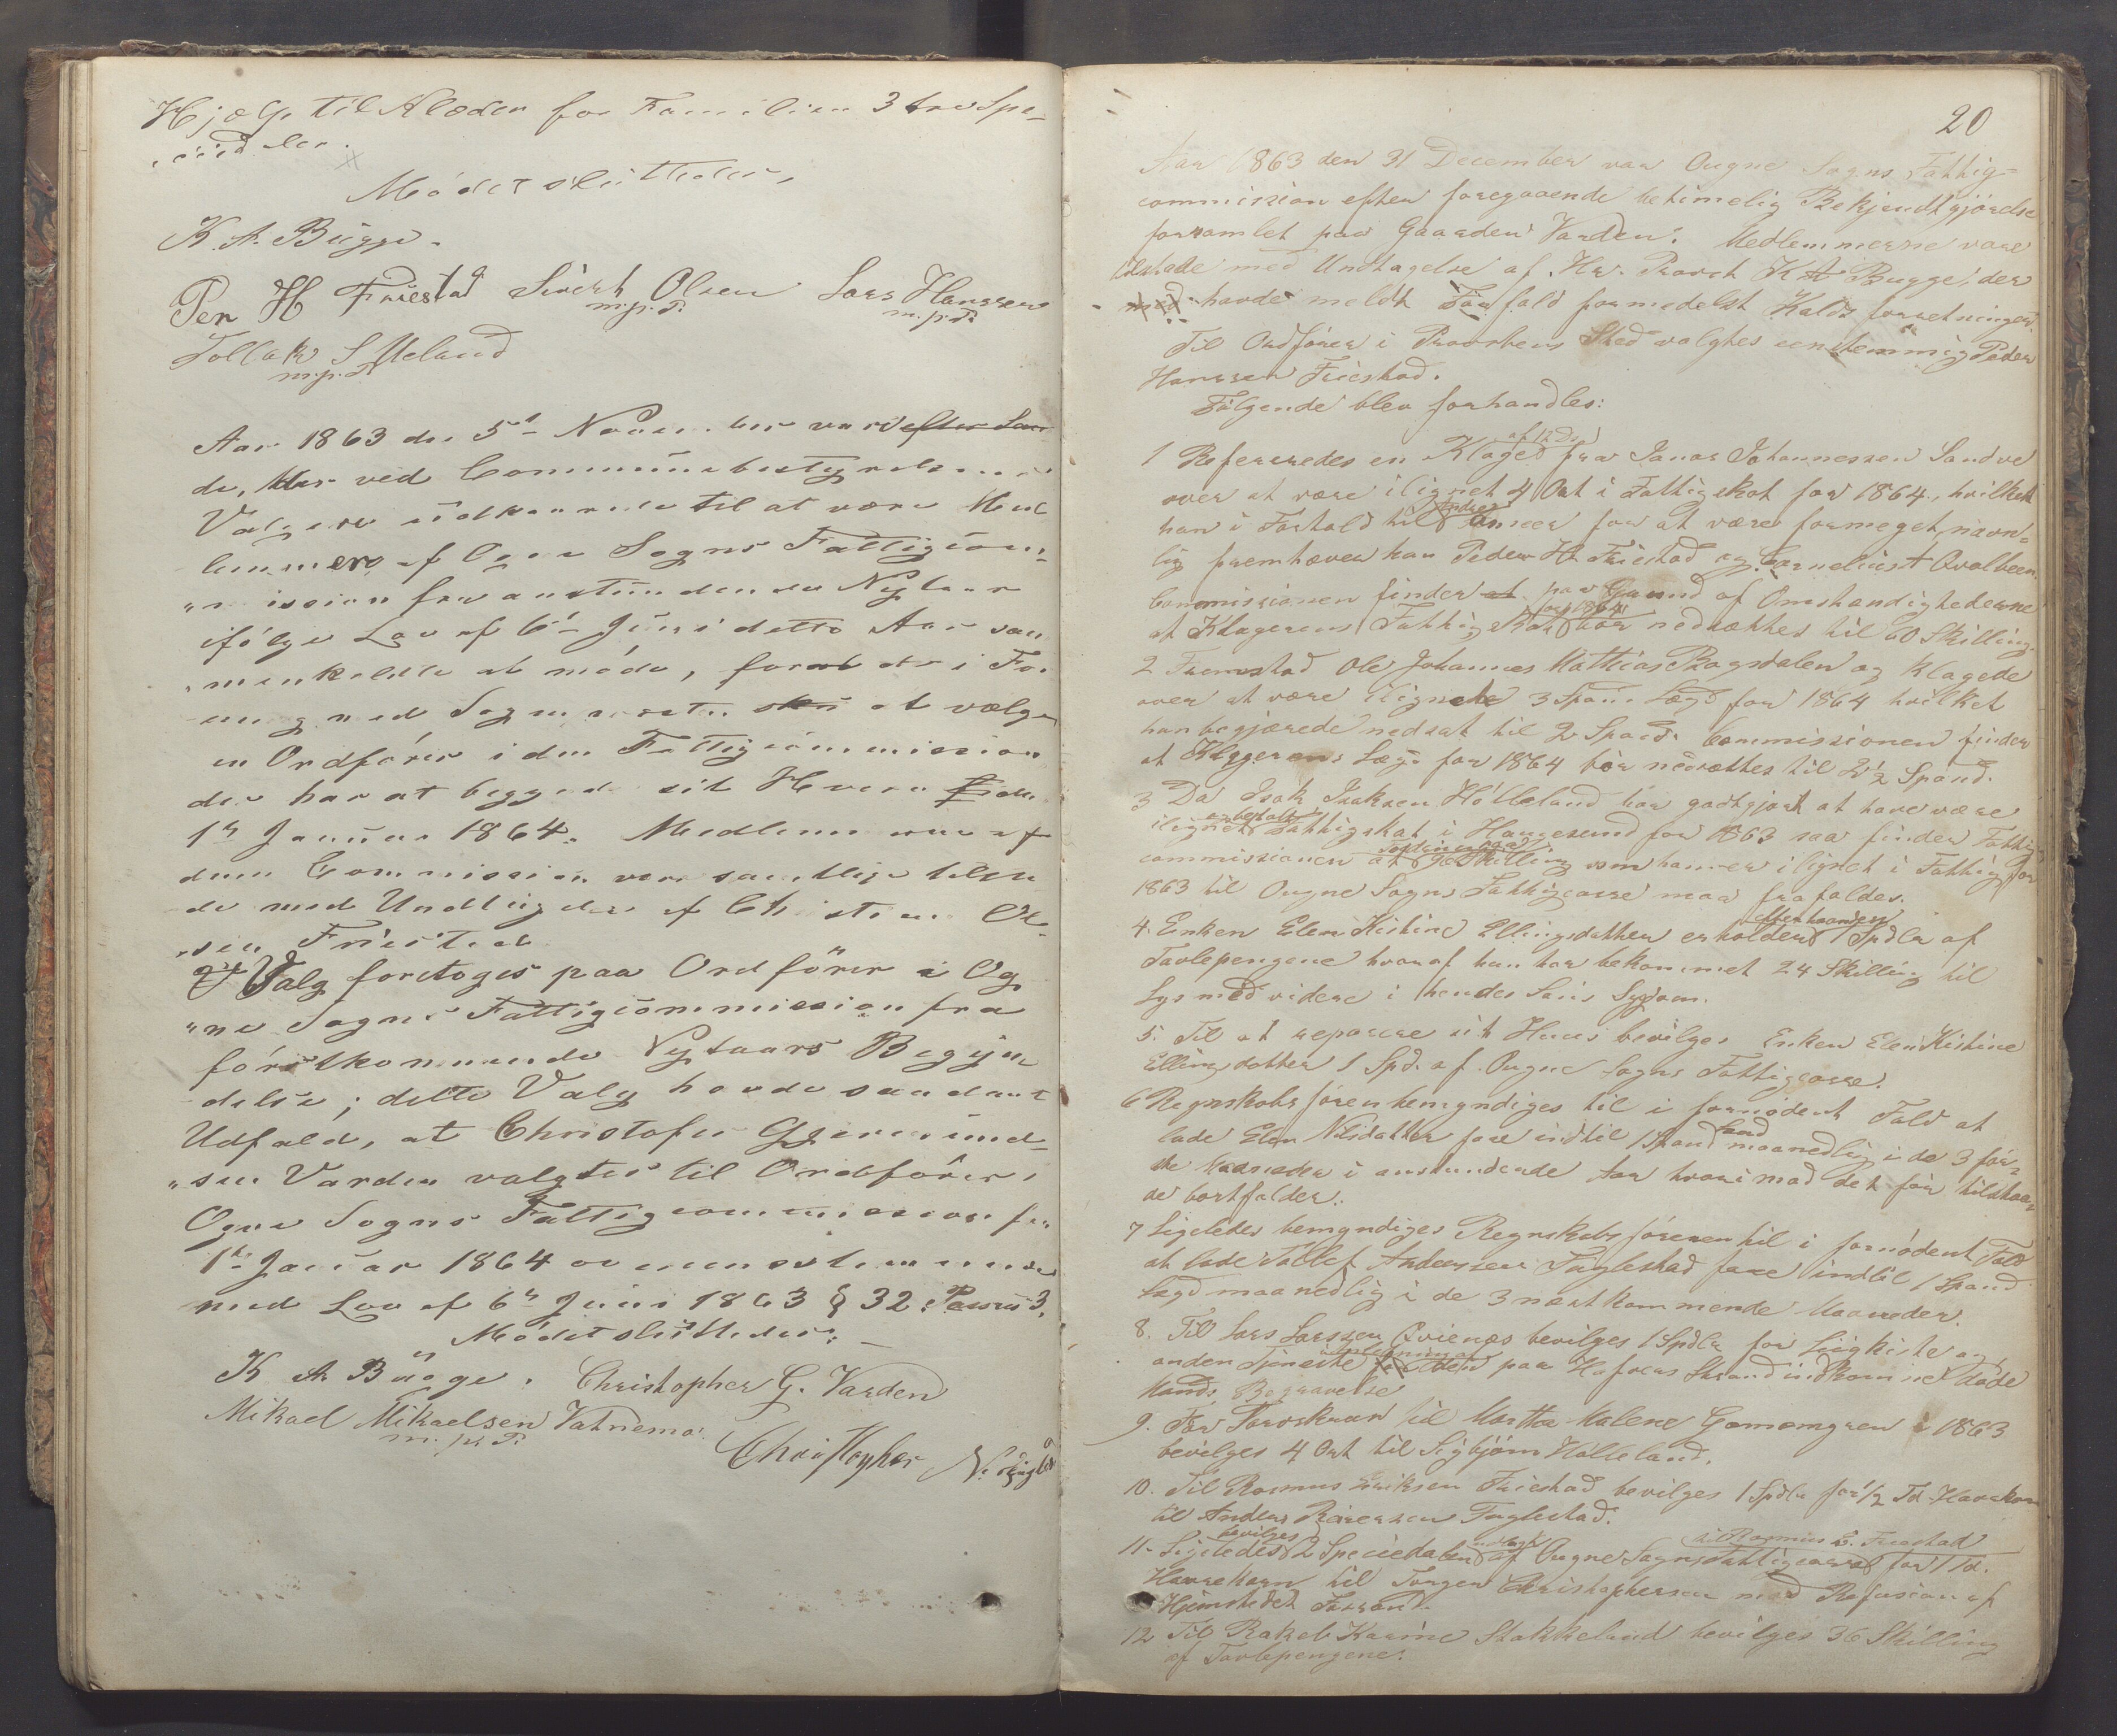 Hjælp til Klæder for Familien 3 tre Spe-
ciedaler.
Mødet sluttedes,
K. A. Bugge.
Per H Friestad Sivert Olsen Lars Hanssen
m. p. P. m. p. P.
Tollak S Meland
m. p. P.
Aar 1863 den 5t November var efter Lov
de, der ved Communebestyrelsens
Valg ere udkaarede til at være Med
lemmer af Ogne Sogns Fattigcom-
mission fra anstundende Nytaar
ifølge Lov af 6te Juni dette Aar sam
menkaldte at møde, forat de i For
ening med Sognepresten sku at vælge
en Ordfører i den Fattigcommission
der har at begynde sit Hverv fide
1ste Januar 1864. Medlemmerne af
denne Commission vare samtlige tilste
de med Undtagelse af Christian Ol-
sen Friestad
Valg foretoges paa Ordfører i Og
ne Sogns Fattigcommission fra
førstkommende Nytaars Begyn
delse; dette Valg havde saadant
Udfald, at Christofer Gjermund-
sen Varden valgtes til Ordfører i
Ogne Sogns Fattigcommission fra
1ste Januar 1864 overensstemmende
med Lov af 6te Juni 1863 § 32 Passus 3.
Mødet sluttedes.
K A Bugge. Christopher G. Varden
Mikael Mikaelsen Vatnemo
m. p. P.
Christopher N.
20
Aar 1863 den 31 December var Ougne Sogns Fattig-
commission efter foregaaende betimelig Bekjendtgjørelse
forsamlet paa Gaarden Varden. Medlemmerne vare
tilstade med Undtagelse af Hr. Provst K A Bugge, der
med havde meldt Forfald formedelst Kalds forretninger.
Til Ordfører i Provstens Sted valgtes eenstemmig Peder
Hanssen Friestad.
Følgende blev forhandles:
1 Refereredes en Klage af 12 Ds fra Janas Johannessen Sandve
over at være ilignet 4 Ort i Fattigskat for 1864, hvilket
han i Forhold til Andre anseer for at være formeget, navn-
lig fremhæver han Peder H. Friestad og Cornelius A Qvalbeen.
Commissionen finder at paa Grund af Omstændighederne
at Klagerens Fattigskat for 1864 bør nedsættes til 60 Skilling.
2 Fremstod Ole Johannes Mathias Bagsdalen og klagede
over at være ilignet 3 Spand Lægd for 1864 hvilket
han begjærede nedsat til 2 Spand. Commissionen finder
at Klagerens Lægd for 1864 bør nedsættes til 2½ Spand.
3 Da Isak Isaksen Hølleland har godtgjort at have være
ilignet og betalt Fattigskat i Haugesund for 1863 saa finder Fattig
commissionen at de Skilling som han er ilignet i Fattig for
1863 til Ougne Sogns Fattigcasse maa frafaldes.
4. Enken Elen Kistine Ellingsdatter erholder efterhaanden 1 Spdlr af
Tavlepengene hvoraf hun har bekommet 24 Skilling til
Lys med videre i hendes Søns Sygdom.
5. Til at reparere sit Huus bevilges Enken Elen Kistine
Ellingsdatter 1 Spd. af Ougne Sogns Fattigcasse.
6 Regnskabsføreren bemyndiges til i fornødent Fald at
lade Elen Nilsdatter faae indtil 1 Spand Lægd maanedlig i de 3 før-
ste Maaneder i anstundende Aar hvorimod det før tilstaa-
de bortfalder.
7 Ligeledes bemyndiges Regnskabsføreren til i fornødent Fald
at lade Tollef Andersen Fuglestad faae indtil 1 Spand
Lægd maanedlig i de 3 næstkommende Maaneder.
8. Til Lars Larssen Qvienæs bevilges 1 Spdlr for Liigkiste og
anden Tjeneste ved paa Hafvens Strand indkomne døde
Mands Begravelse
9. For til Martha Malene Gamamgren i 1863
bevilges 4 Ort til Sigbjørn Hølleland.
10. Til Rasmus Eriksen Friestad bevilges 1 Spdlr for ½ Td. Havrekorn
til Anders Fuglestad.
11. Ligeledes bevilges 2 Speciedaler af Ougne Sogns Fattigcasse til Rasmus E. Friestad for 1 Td.
Havrekorn til Torger Christophersen med Refusion af
Hjemstedet
12 Til Rakel Karine Stakkeland bevilges 36 Skilling
af Tavlepengene.